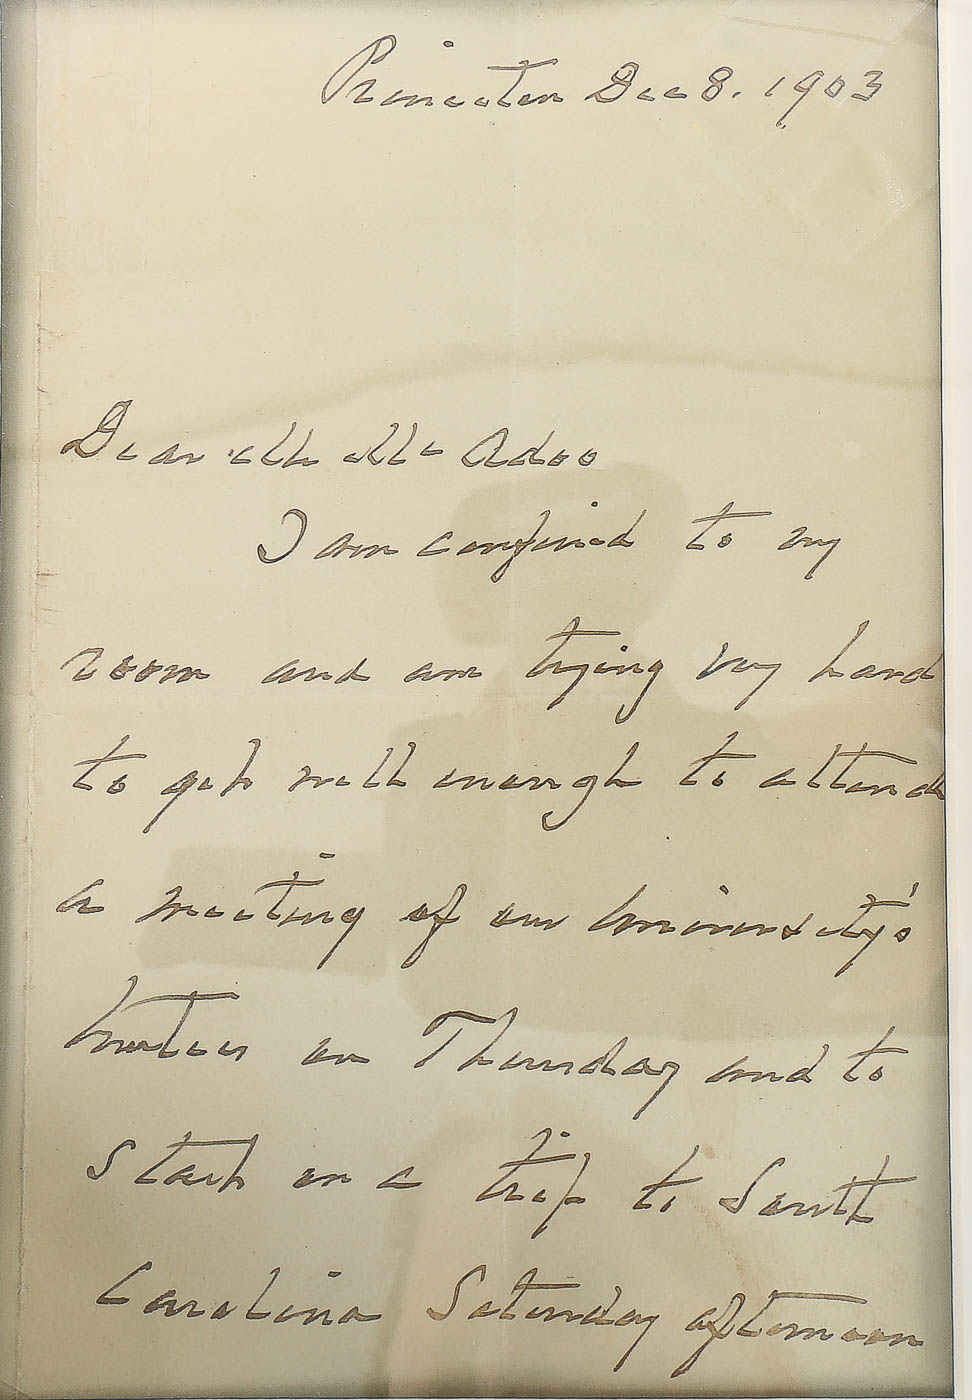 Princeton Dec 8. 1903
Dear Mr McAdoo
I am confined to my
room and am trying very hard
to get well enough to attend
a meeting of our University's
trustees on Thursday and to
start on a trip to South
Carolina Saturday afternoon